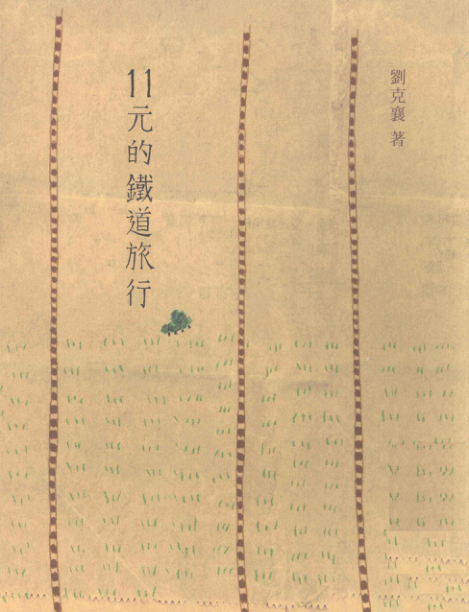 劉克襄 著
11元的鐵道旅行